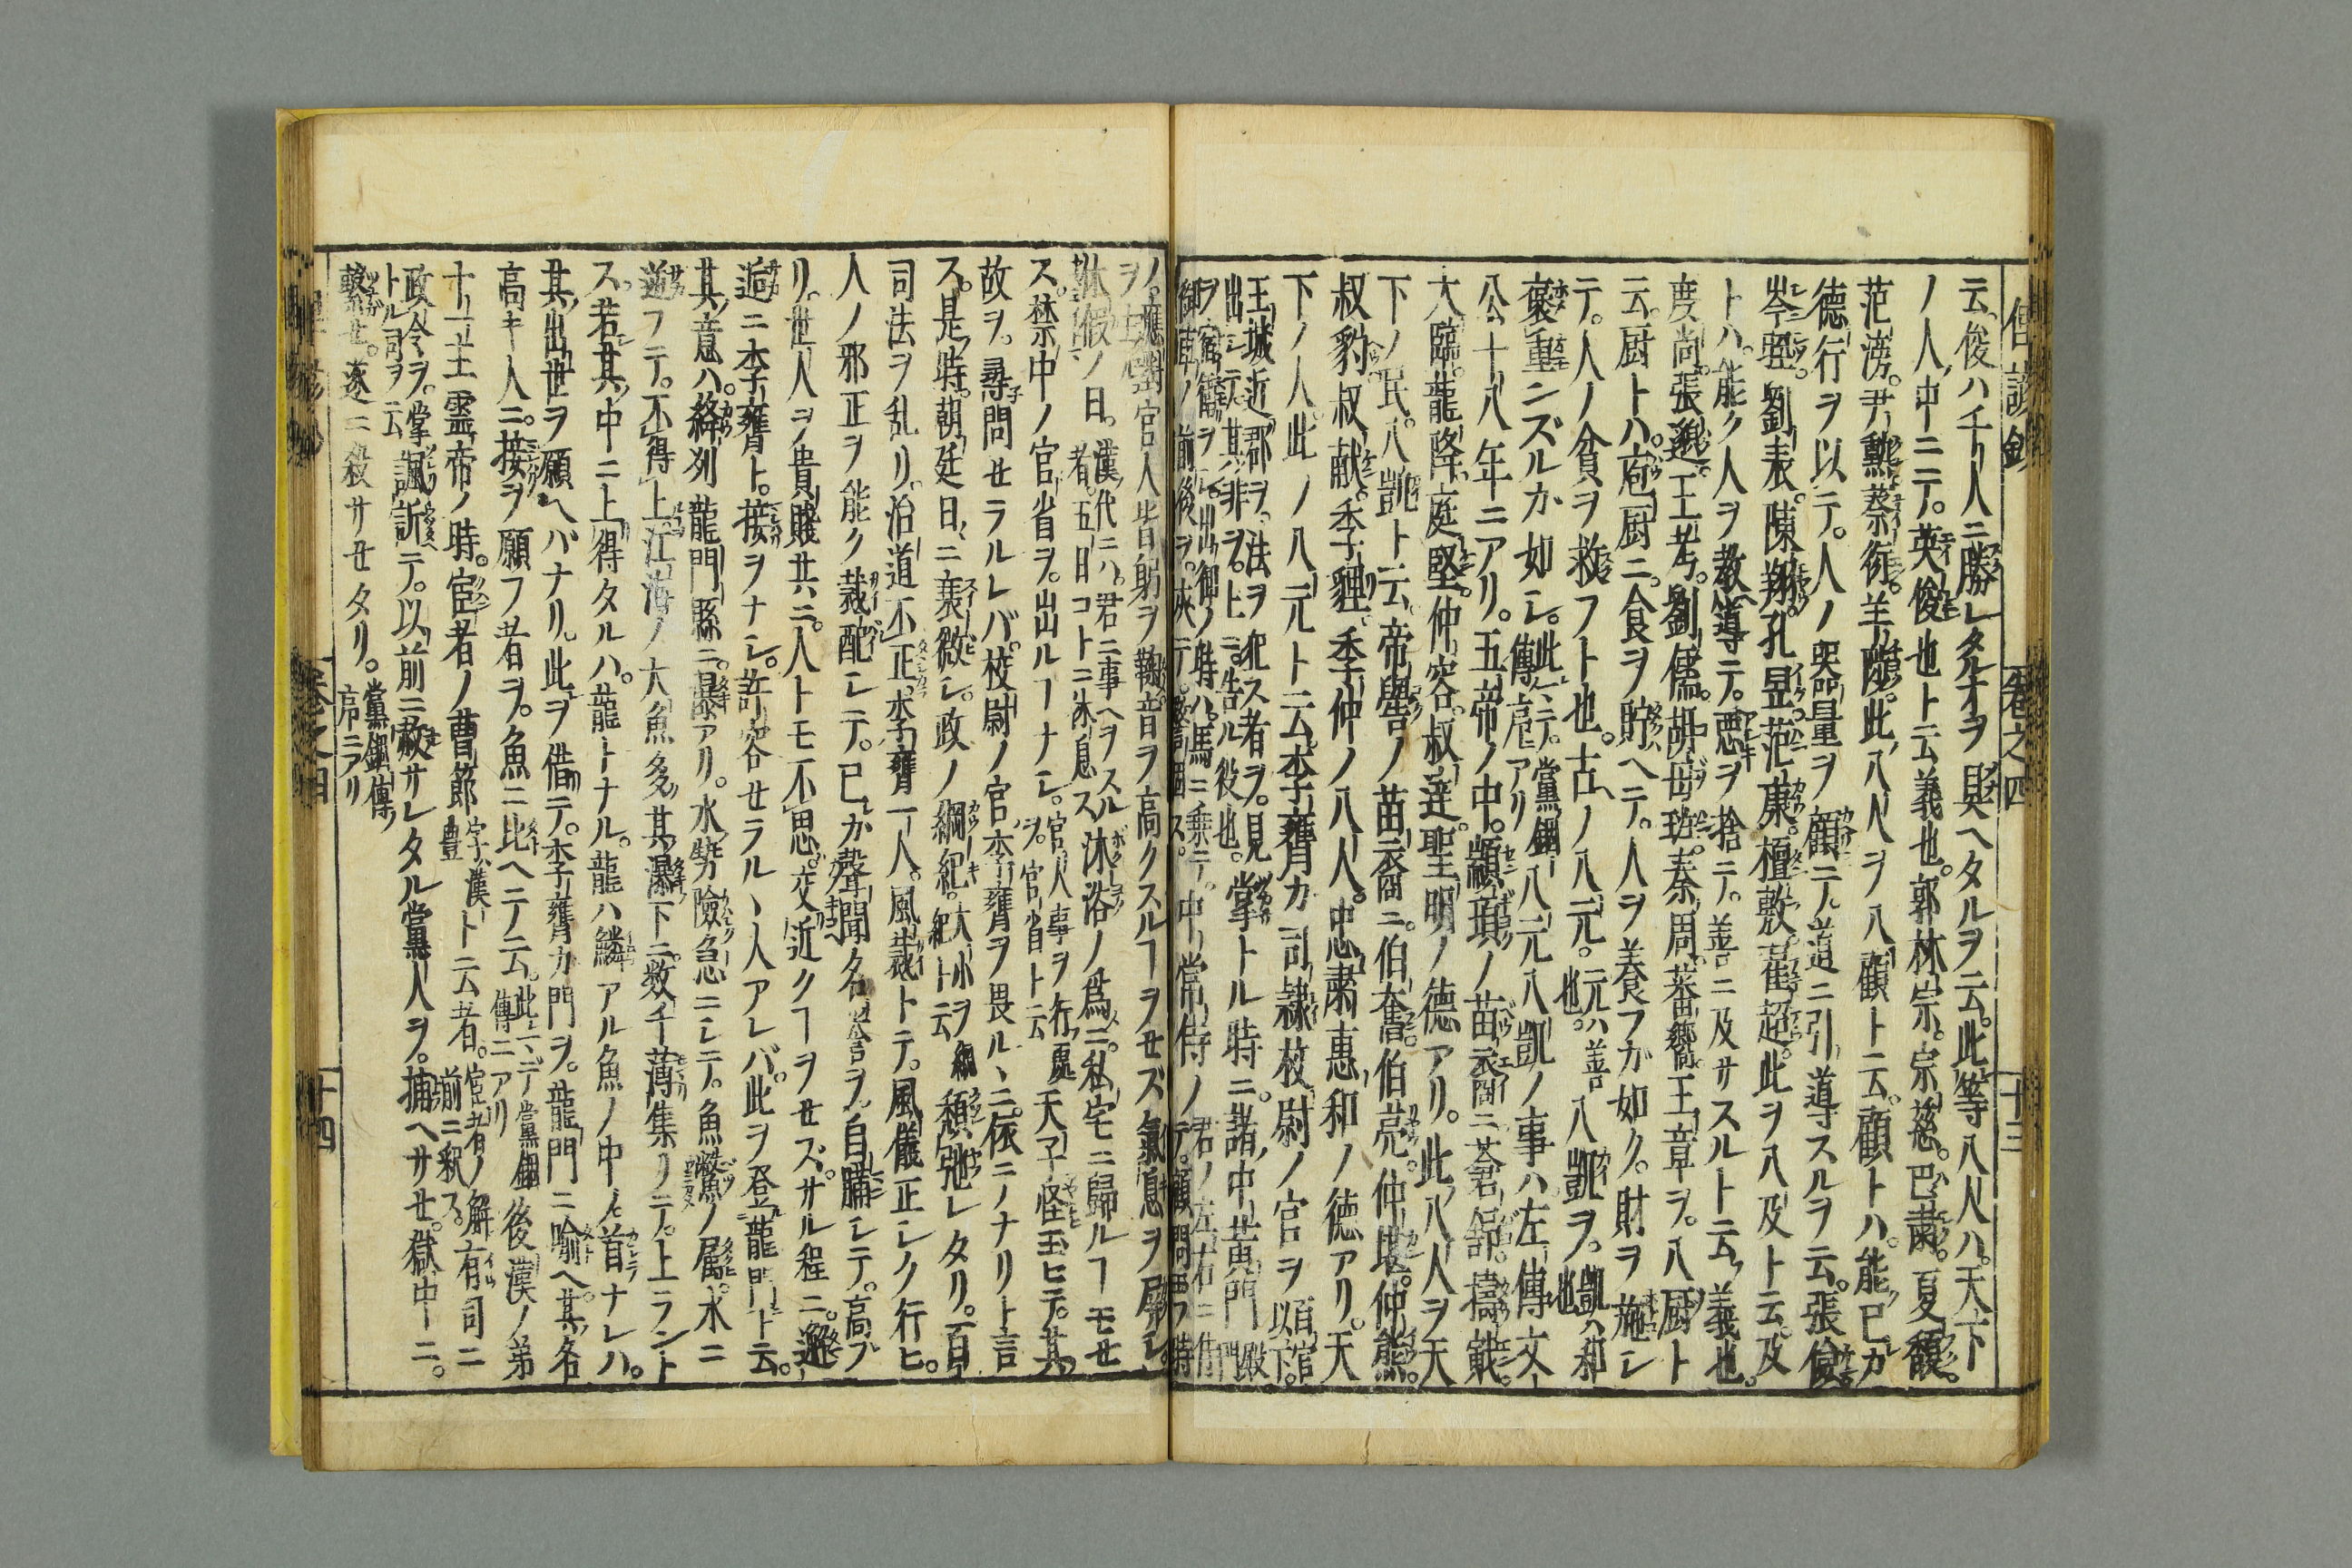 巻之四
十三
云。俊ハ千人ニ勝レタルオヲ具ヘタルヲ云。此等八人ハ。天下
ノ人ノ中ニテ。英俊也ト云義也。郭林宗。宗慈。巴肅。夏馥。
范滂。尹勲。蔡衍。羊陟。此ノ八人ヲ八顧ト云。顧トハ。能ク己カ
德行ヲ以テ。人ノ器量ヲ顧ニテ。道ニ引導スルヲ云。張儉。
岑晊。劉表。陳翔。孔昱。范康。檀敷。翟超。此ヲ八及ト云。及
トハ。能ク人ヲ教導テ。悪ヲ捨ニテ。善ニ及サスルト云義也。
度尚。張邈。王考。劉儒。胡母班。秦周。蕃嚮。王章ヲ。八厨ト
云。厨トハ。庖厨ニ。食ヲ貯ヘテ。人ヲ養フカ如ク。財ヲ施シ
テ。人ノ貧ヲ救フト也。古ノ八元。元ハ善也。八凱ヲ。凱ハ和也
褒重ニズルカ如シ。此ニテ。黨錮傳ニアリ八元八凱ノ事ハ左傳文
公十八年ニアリ。五帝ノ中。顓頊ノ苗裔ニ蒼舒。檮戭。
大臨。龍降。庭堅。仲容。叔達。聖明ノ德アリ。此八人ヲ天
下ノ民。八凱ト云。帝嚳ノ苗裔ニ。伯奮。伯亮。仲堪。仲熊。
叔豹。叔献。季貍。季仲ノ八人。忠肅惠和ノ德アリ。天
下ノ人此ノ八元ト云。李膺カ司隷校尉ノ官ヲ以
王城近郡ヲ。法ヲ犯ス者ヲ。見出シテ。其ノ非ヲ。上ニ。告ル役也。掌トル時ニ。諸ノ中黄門
ノ。應對官人皆躬ヲ 音ヲ高クスルヿヲセズ氣息ヲ屏シ。
休假ノ日。漢代ニハ。君ニ事ヘヲスル者。五日コトニ休息ス沐浴ノ爲ニ。私宅ニ歸ルヿモセ
ス。禁中ノ官省ヲ。出ルヿナシ。官人事ヲ行フ處ヲ。官省ト云天子怪玉ヒテ。其
故ヲ。尋問セラルレバ。校尉ノ官李膺ヲ畏ルヽニ。依ニノナリト言
ス。是ノ時。朝廷日ニ衰微シ。政ノ綱紀。頽弛レタリ。百
司法ヲ乱リ。治道不正李膺一人。風裁トテ。風儀正シク行ヒ。
人ノ邪正ヲ能ク裁配シテ。己カ聲聞名譽ヲ。自臃シテ。高ブ
リ。世人ヲ貴賤共ニ。人トモ不思。交近クヿヲセズ。サル程ニ。邂
逅ニ李膺ト。接ヲナシ。許容セラルヽ人アレバ。此ヲ登龍門ト云。
其ノ意ハ。絳列龍門縣ニ。瀑アリ。水勢險急ニシテ。魚鱉ノ屬。水ニ
遊フテ。不得上江海ノ大魚多ク其瀑下ニ。数千薄集リテ。上ラント
ス。若シ其ノ中ニ上得タルハ。龍トナル。龍ハ鱗アル魚ノ中ノ首ナレハ。
其ノ出世ヲ願ヘバナリ。此ヲ借テ。李膺カ門ヲ。龍門ニ喩ヘ。其ノ名
高キ人ニ。接ヲ願フ者ヲ。魚ニ比ヘテ云。此ニテ黨錮傳ニアリ後漢ノ第
十一主靈帝ノ時。宦者ノ曹節字ハ漢豊ト云者。宦者ノ解前ニ釈ス。有司ニ
政令ヲ。掌トル司ヲ云諷訴テ。以前ニ赦サレタル黨人ヲ。捕ヘサセ。獄中ニ。
繫世。遂ニ殺サセタリ。黨錮傳序ニアリ
巻之四
十四